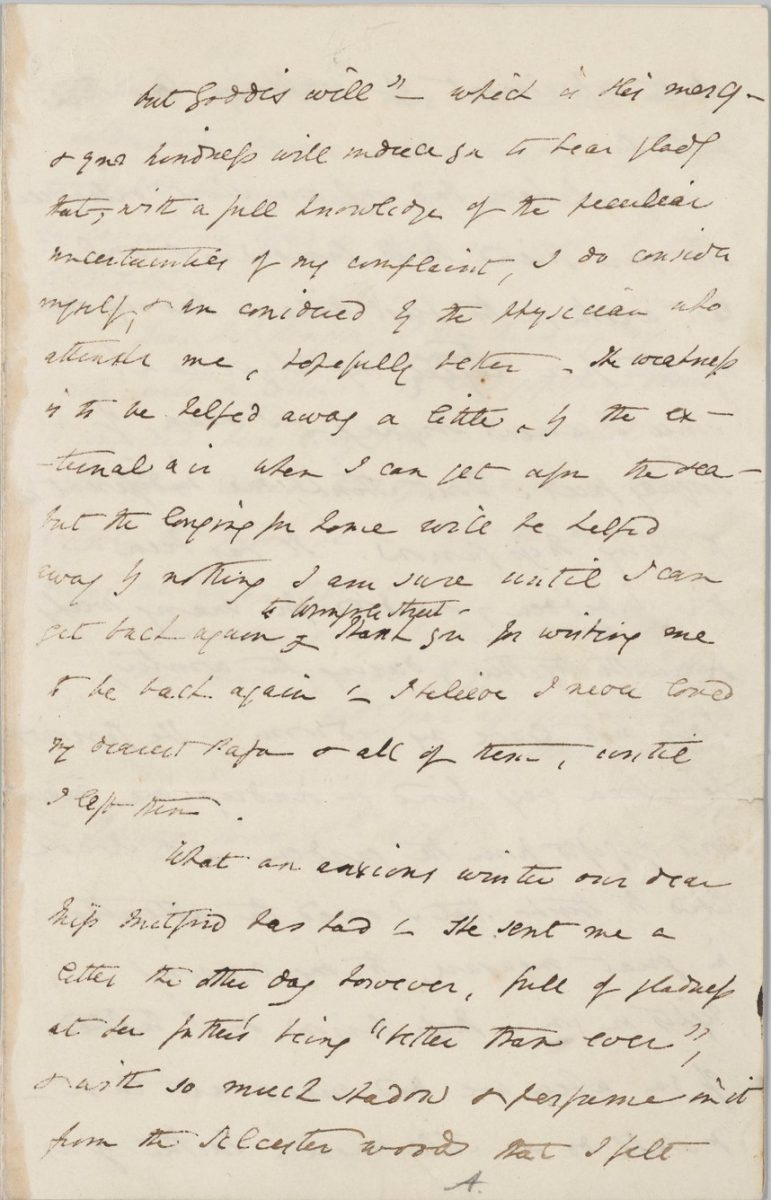 but Goddis will" – which is His mercy –
& your kindness will induce you to hear gladly
that, with a full knowledge of the peculiar
uncertainties of my complaint, I do consider
myself, & am conidered by the physician who
attends me, hopefully better – The weakness
is to be helped away a little, by the ex –
– ternal air when I can get upon the sea –
but the longing for home will be helped
away by nothing I am sure until I can
get back again to Wimpole Street – Thank you for wishing me
to be back again – I believe I never loved
my dearest Papa & all of them, until
I left them.
What an anxious winter our dear
Miss Mitford has had – She sent me a
letter the other day however, full of gladness
at her father's being "better than ever",
& with so much shadow & perfume in it
from the Silcester woods that I felt
A.